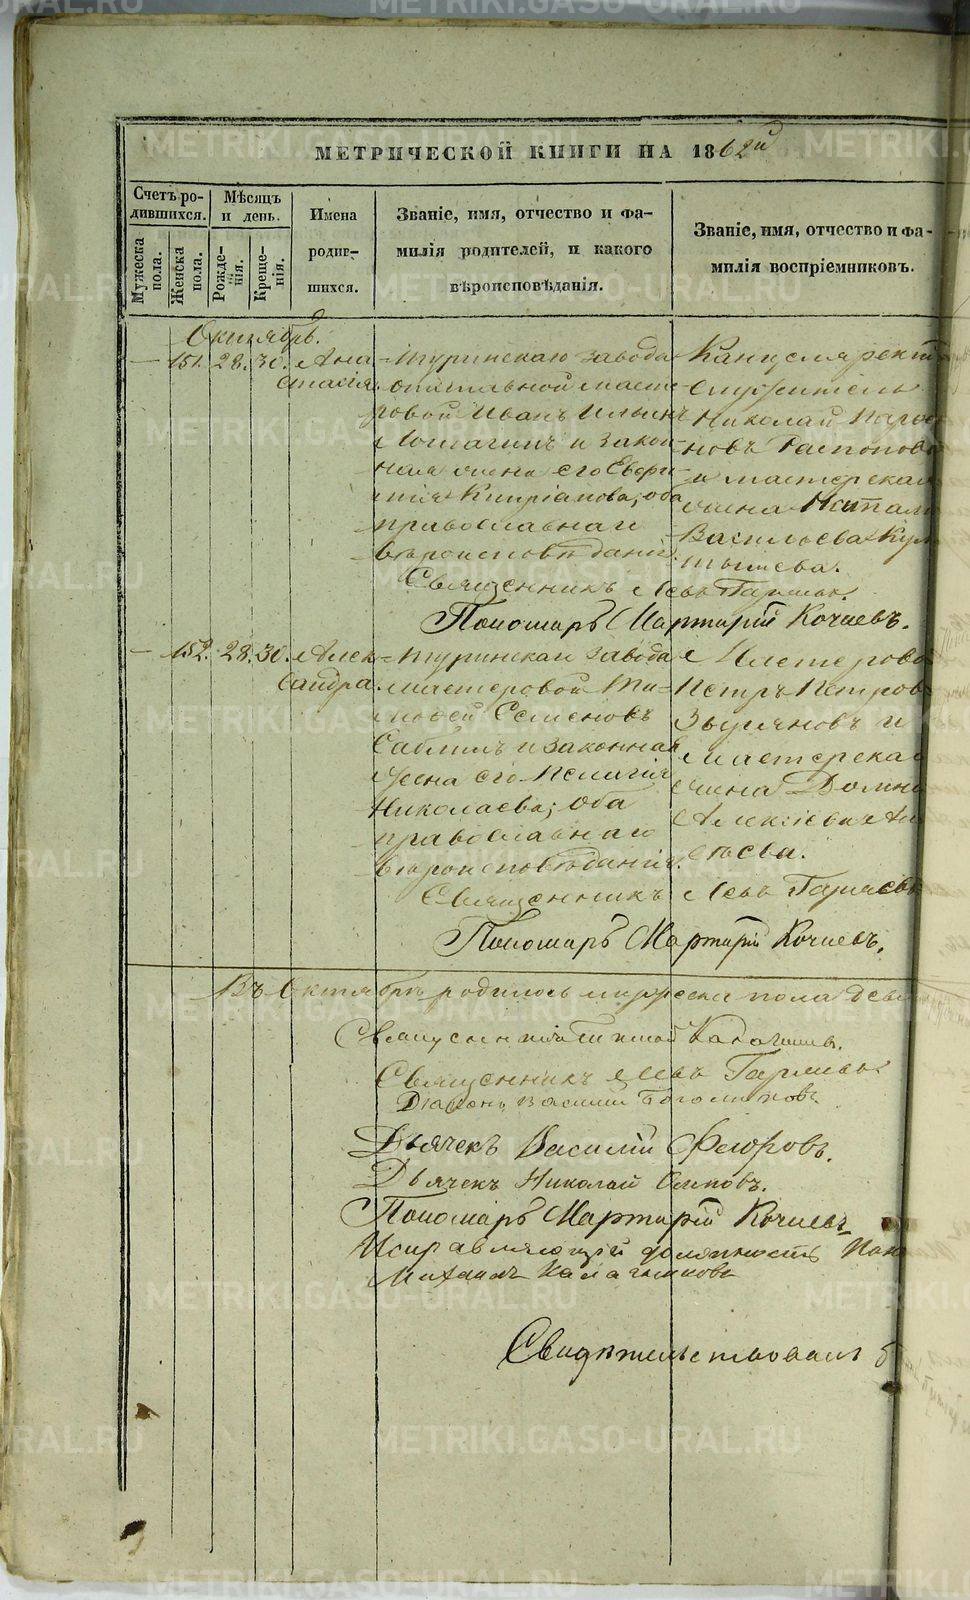 МЕТРИЧЕСКОЙ КНИГИ НА 1862й
Счетъ ро-
дившихся.
Мужеска
пола.
Женска
пола.
Мѣсяцъ
и день.
Рожде-
нія.
Креще-
нія.
Имена
родив-
шихся.
Званіе, имя, отчество и фа-
милія родителей, и какого
вѣроисповѣданія.
Званіе, имя, отчество и фа-
милія воспріемниковъ.
Октябрь.
— 151. 28. 30. Ана-
стасія.
Туринскаго завода
мас-
ровой Иванъ Ильинъ
Лошагинъ и закон-
ная жена его Евфи-
мія Кипріанова; оба
православнаго
вѣроисповѣданія.
Канцелярскій
служитель
Николай
новъ Распоповъ
и мастерская
жена Натал
Васильева Кур
тышева.
Священникъ Левъ Гаряевъ.
Пономарь Мартирій Кочневъ.
— 152. 28. 30. Алек-
сандра.
Туринскаго завода
мастеровой Ти-
мофей Семеновъ
Саблинъ и законная
жена его Пелагія
Николаева; оба
православнаго
вѣроисповѣданія.
Мастерово
Петръ Петров
Звѣряновъ и
мастерская
жена Домна
Алексіева Ал
сѣева.
Священникъ Левъ Гаряевъ
Пономарь Мартирій Кочневъ.
Въ Октябрѣ родилось мужеска пола
Священникъ Левъ Гаряевъ.
Діаконъ Василій Боголюповъ
Дьячекъ Василій Флоровъ.
Дьячекъ Николай Осиповъ.
Пономарь Мартирій Кочневъ
Исправляющій должность Пон
Михаилъ Калачниковъ
Свидѣтельствовалъ
METRIKI.GASO-URAL.RU